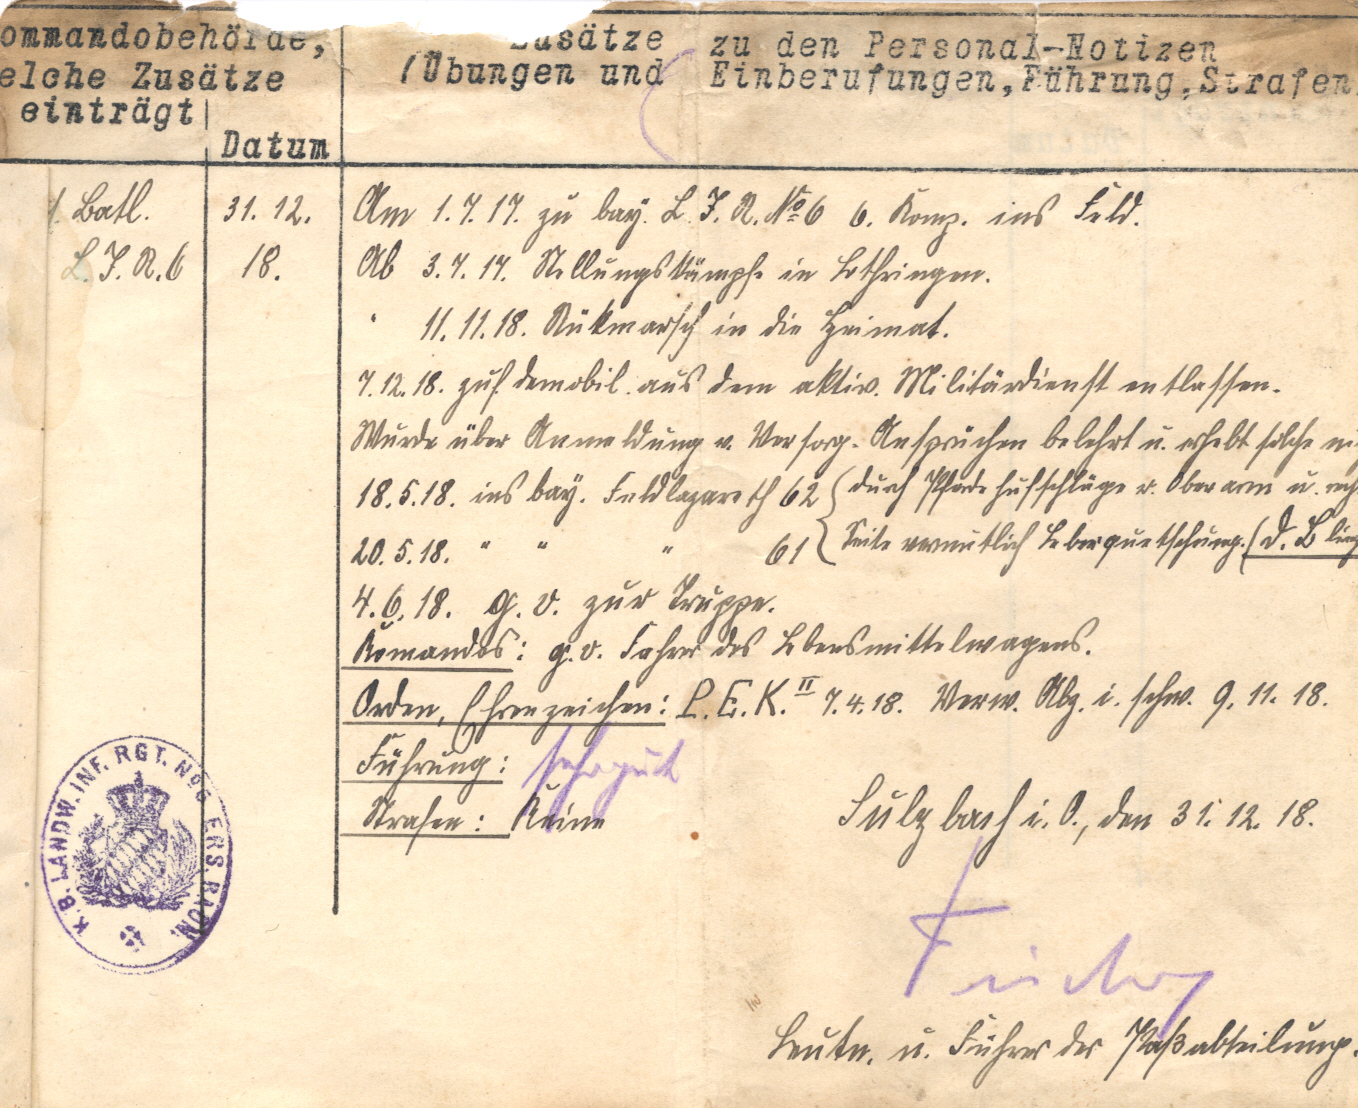 Kommandobehörde,
welche Zusätze
einträgt
Datum
Zusätze zu den Personal-Notizen
(Übungen und Einberufungen, Führung, Strafen
1. Batl.
L. J. R. 6
31. 12.
18.
Am 1.7.17. zu bay. L. J. R. No 6 6. Komp. ins Feld.
Ab 3.7.17. Stellungskämpfe in Lothringen.
" 11.11.18. Rükmarsch in die Heimat.
7.12.18. zuf. demobil. aus dem aktiv. Militärdienst entlassen.
Wurde über Anmeldung v. Versorg. Ansprüchen belehrt u. erhebt solche
18.5.18. ins bay. Feldlazareth 62 { durch Pferdehufschläge r. Oberarm u.
20.5.18. " " " 61 { Seite vermutlich Leberquetschung. (d. B
4.6.18. g. v. zur Truppe.
Komandos: g. v. Fahrer des Lebensmittelwagens.
Orden, Ehrenzeichen: P. E. K. II 7.4.18. Verw. Abz. i. schw. 9.11.18.
Führung: sehr gut
Strafen: Keine
Sulzbach i. O., den 31.12.18.
Leutn. u. Führer der Paßabteilung.
K. B. LANDW. INF. RGT. No 6 ERS. BAON.